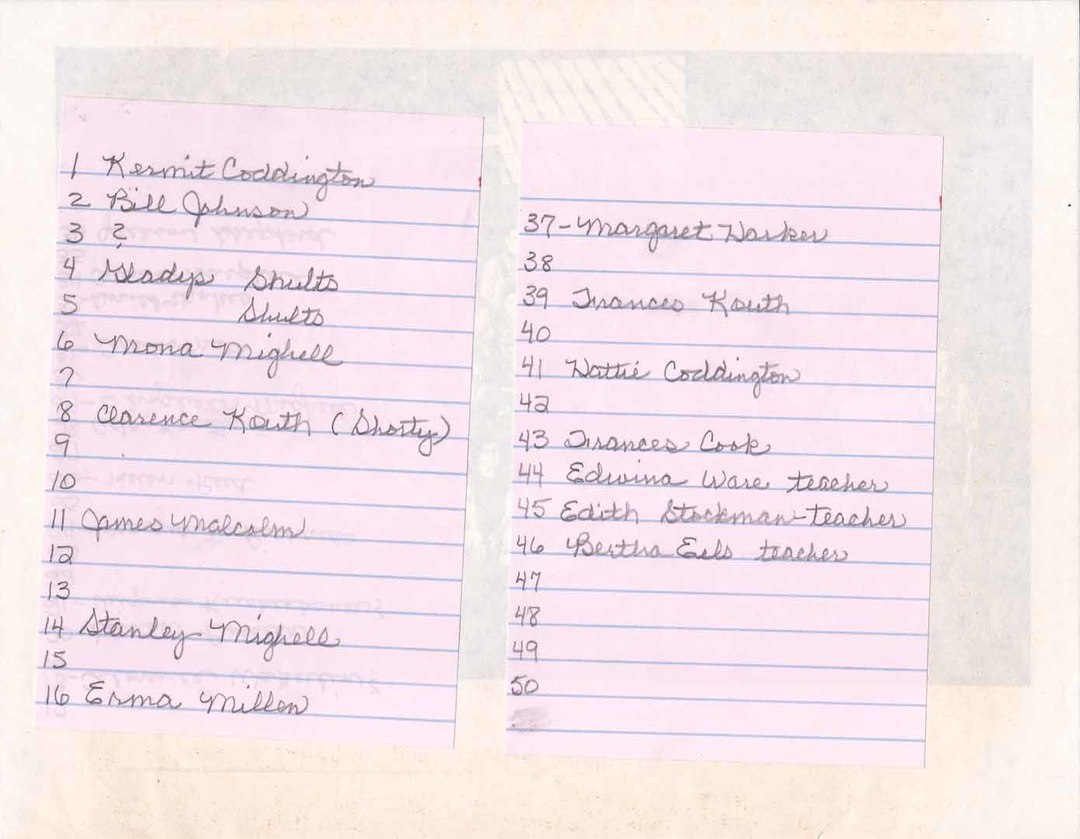 1 Kermit Coddington
2 Bill Johnson
3 ?
4 Gladys Shults
5 Shults
6 Mona Mighell
7
8 Clarence Kouth (Shorty)
9
10
11 James Malcolm
12
13
14 Stanley Mighell
15
16 Erma Millen
37-Margaret
38
39 Frances Kouth
40
41 Hattie Coddington
42
43 Frances Cook
44 Edwina Ware teacher
45 Edith Stockman-teacher
46 Bertha Eels teacher
47
48
49
50